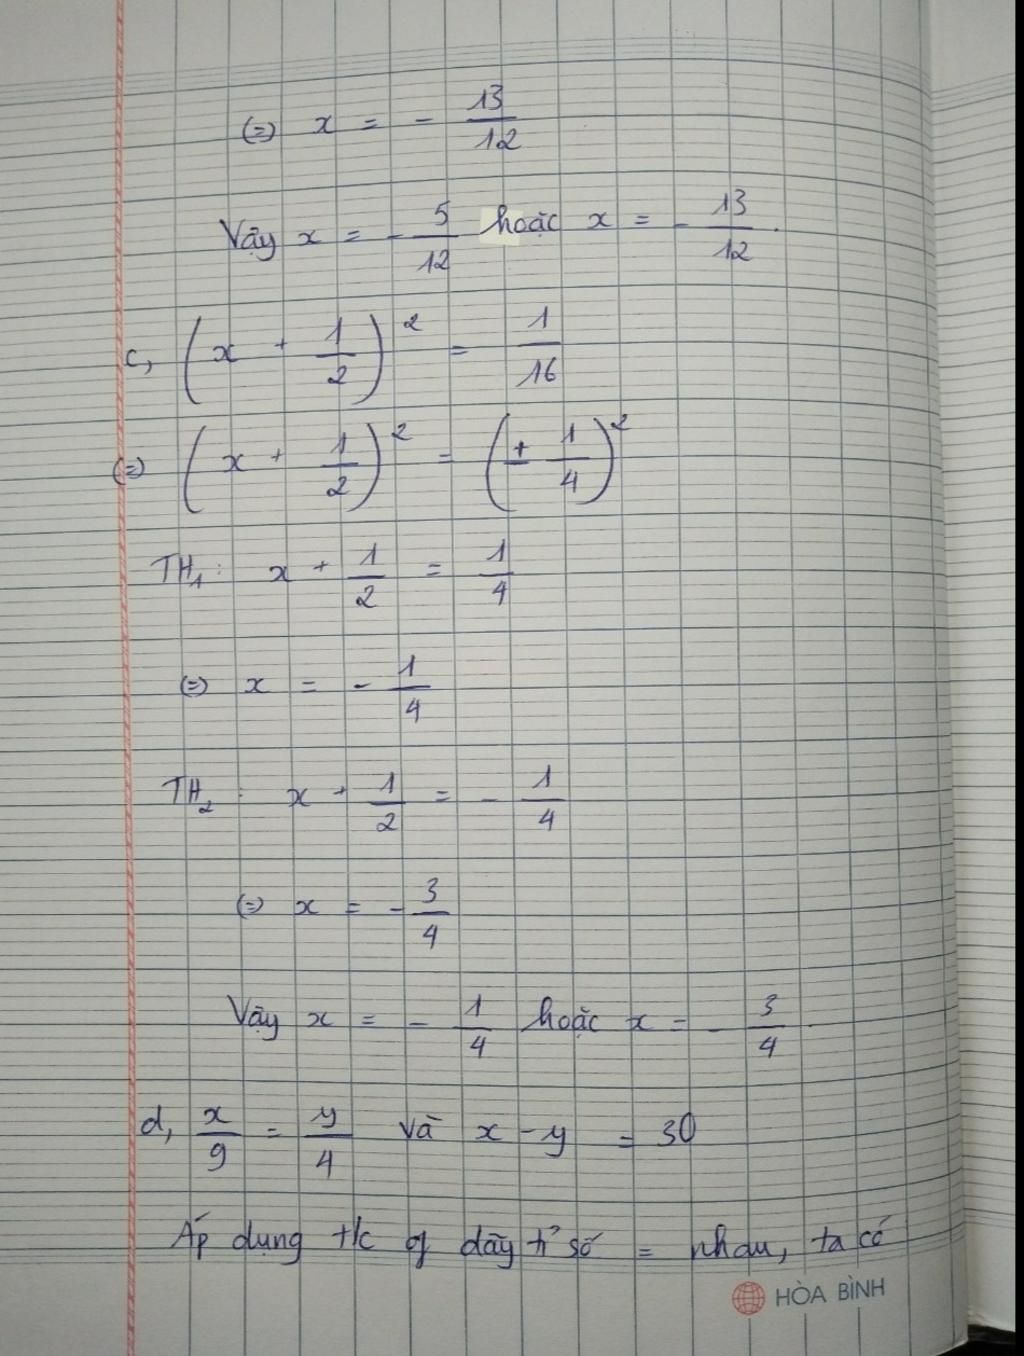 (=) x = - 13/12
Vậy x = - 5/12 hoặc x = - 13/12.
c, (x + 1/2)² = 1/16
(=) (x + 1/2)² = (± 1/4)²
TH₁: x + 1/2 = 1/4
(=) x = - 1/4
TH₂: x + 1/2 = - 1/4
(=) x = - 3/4
Vậy x = - 1/4 hoặc x = - 3/4
d, x/9 = y/4 và x - y = 30
Áp dụng t/c of dãy tỉ số = nhau, ta có
HÒA BÌNH